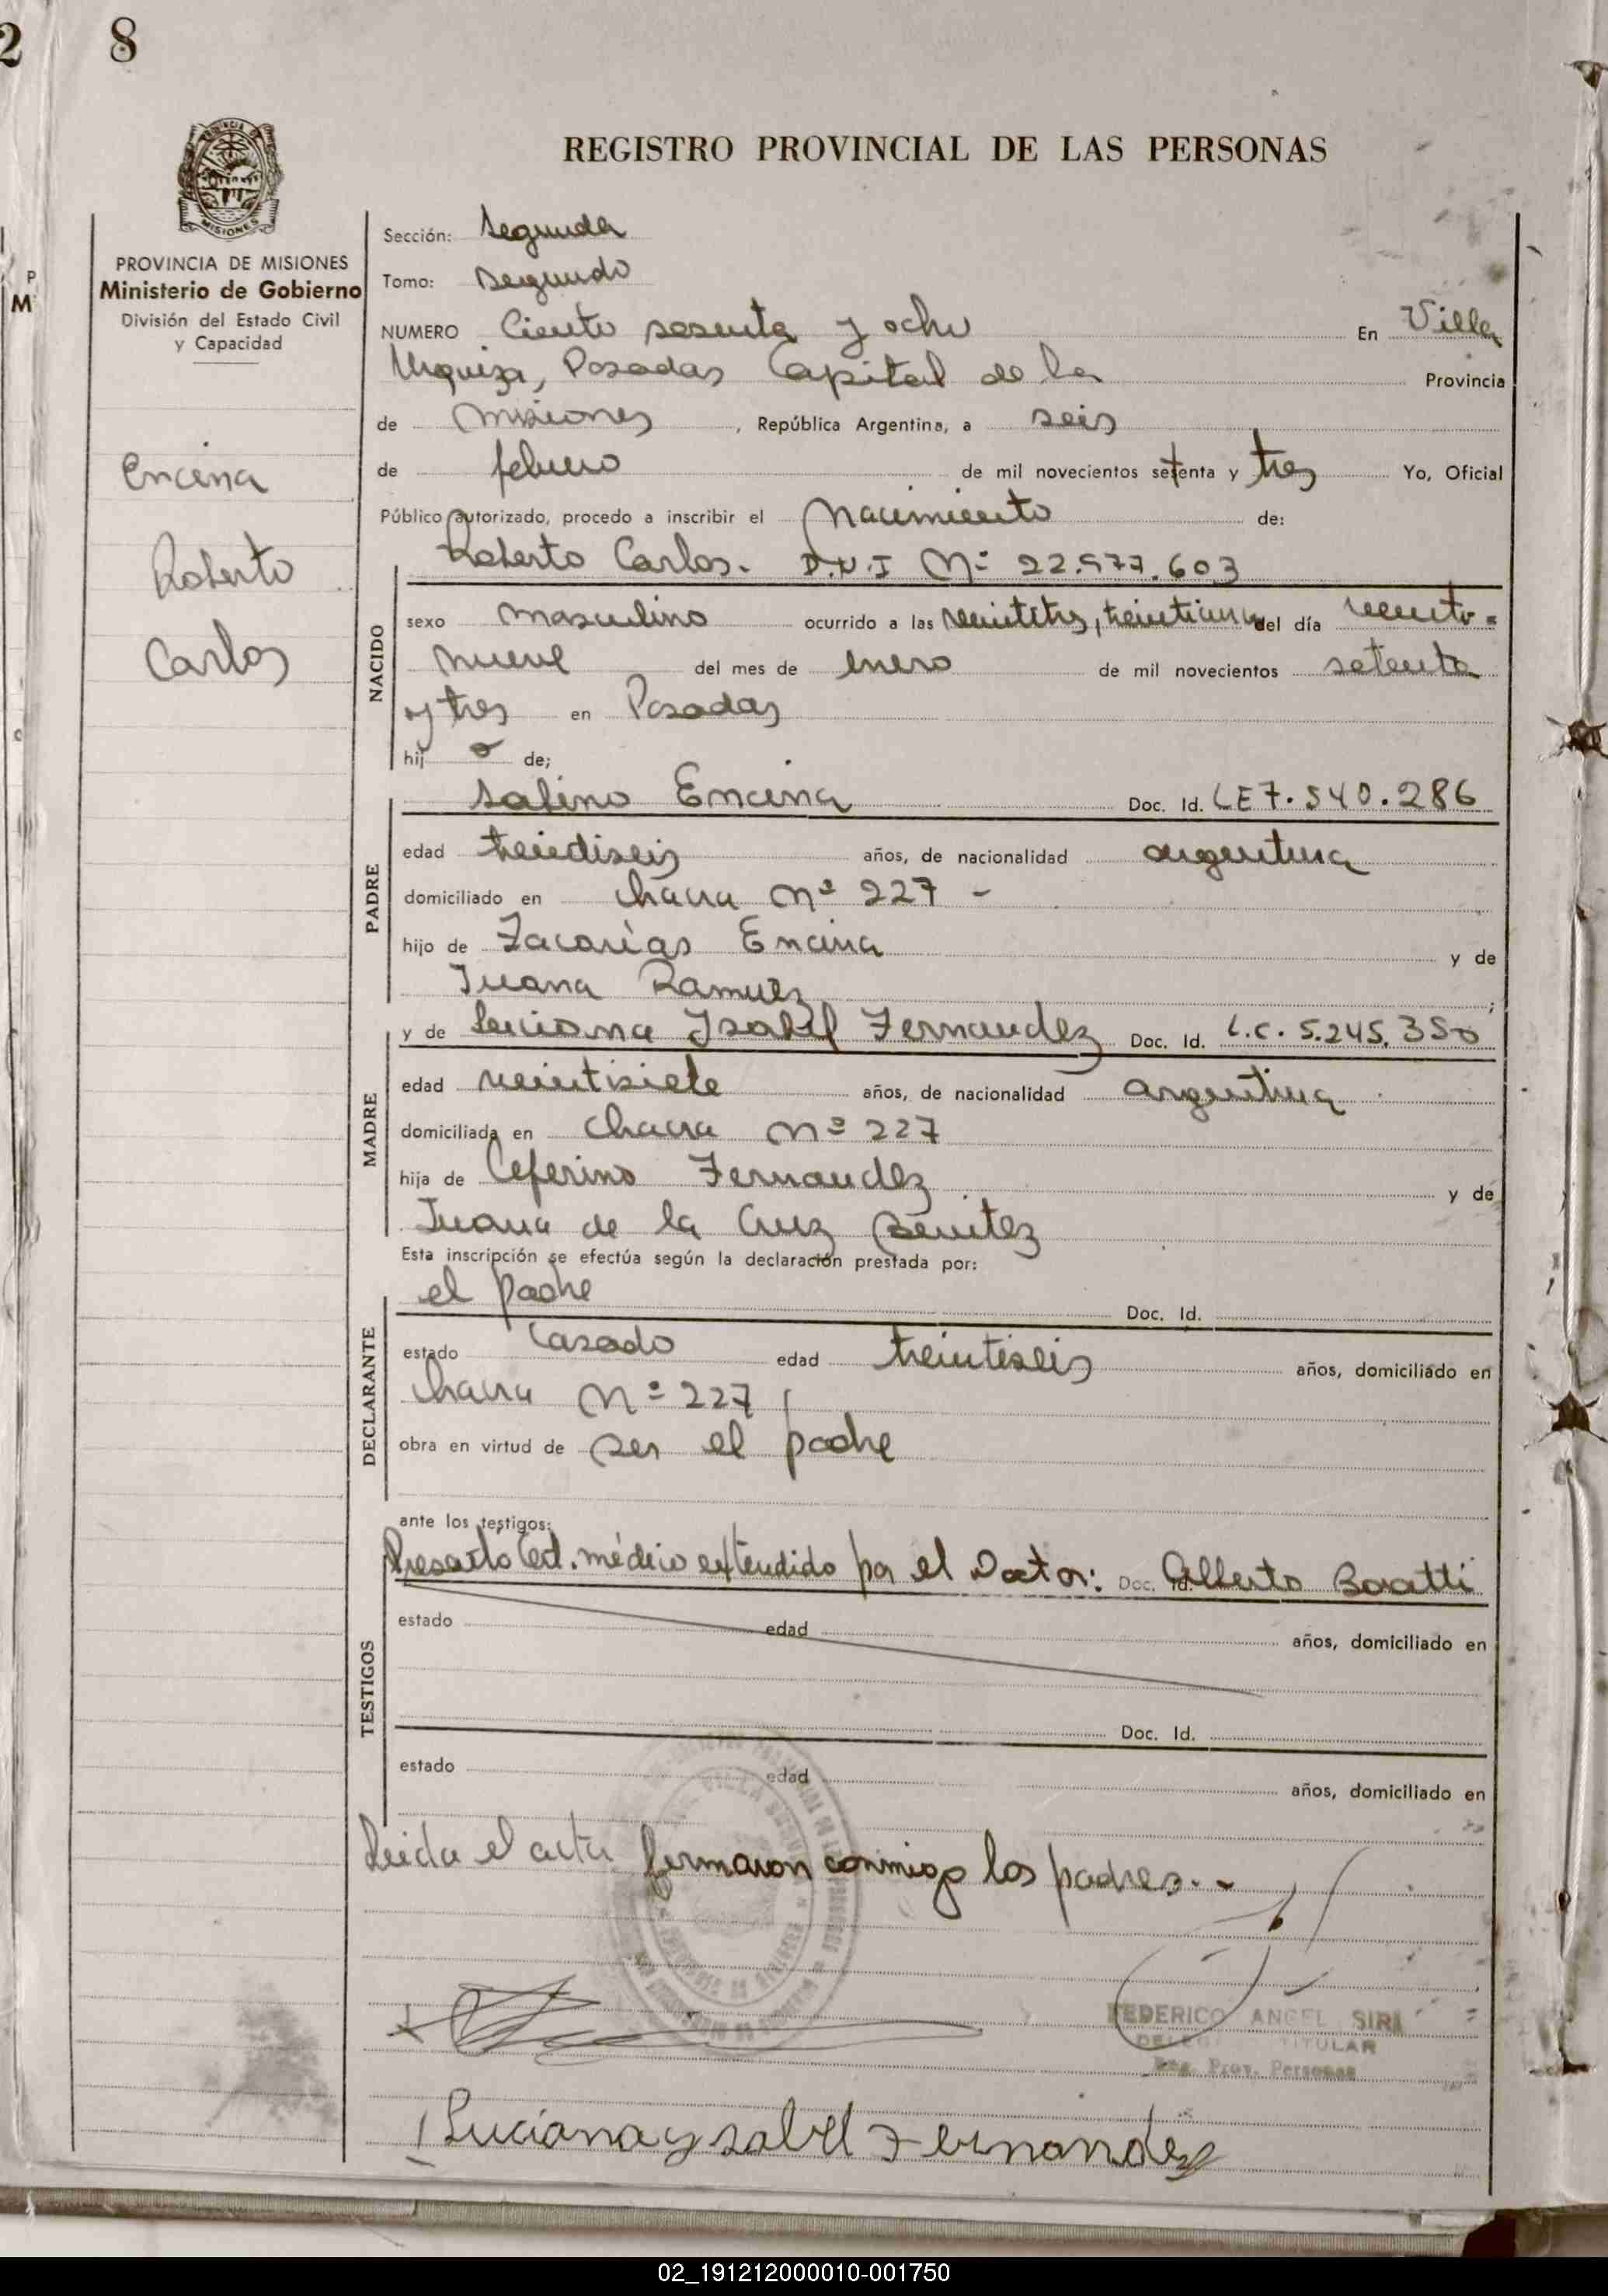 2 8
REGISTRO PROVINCIAL DE LAS PERSONAS
MISIONES
PROVINCIA DE MISIONES
Ministerio de Gobierno
División del Estado Civil
y Capacidad
P
M
Encina
Roberto
Carlos
Sección: Segunda
Tomo: Segundo
NUMERO Ciento sesenta y ocho En Villa
Urquiza, Posadas Capital de la Provincia
de Misiones, República Argentina, a seis
de febrero de mil novecientos setenta y tres Yo, Oficial
Público autorizado, procedo a inscribir el Nacimiento de:
Roberto Carlos. D.N.I Nº 22.977.603
NACIDO
sexo masculino ocurrido a las veintitres, treintiuna del día veinti-
nueve del mes de enero de mil novecientos setenta
y tres en Posadas
hijo de;
Sabino Encina Doc. Id. LE 7.540.286
PADRE
edad treindiseis años, de nacionalidad argentina
domiciliado en chacra Nº 227 -
hijo de Zacarías Encina y de
Juana Ramirez;
y de Luciana Isabel Fernandez Doc. Id. L.C. 5.245.350
MADRE
edad veintisiete años, de nacionalidad argentina
domiciliada en chacra Nº 227
hija de Ceferino Fernandez y de
Juana de la Cruz Benitez
Esta inscripción se efectúa según la declaración prestada por:
el padre Doc. Id.
DECLARANTE
estado casado edad treintiseis años, domiciliado en
chacra Nº 227
obra en virtud de ser el padre
ante los testigos:
Presentó Cert. médico extendido por el Doctor: Doc. Id. Alberto Baratti
TESTIGOS
estado edad años, domiciliado en
Doc. Id.
estado edad años, domiciliado en
Leida el acta firmaron conmigo los padres.-
FEDERICO ANGEL SIRI
TITULAR
Reg. Prov. Personas
Luciana ysabel Fernandez
02_191212000010-001750